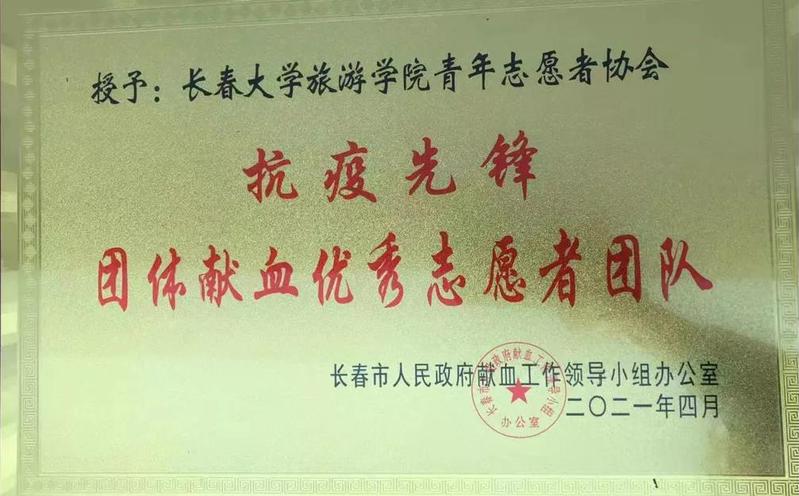 授予：长春大学旅游学院青年志愿者协会
抗疫先锋
团体献血优秀志愿者团队
长春市人民政府献血工作领导小组办公室
二〇二一年四月
长春市人民政府献血工作领导小组
办公室